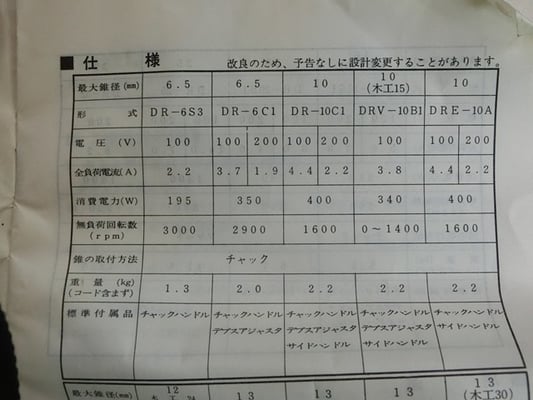 ■仕 様 改良のため、予告なしに設計変更することがあります。
最大錐径(mm) 6.5 6.5 10 10 (木工15) 10
形 式 DR-6S3 DR-6C1 DR-10C1 DRV-10B1 DRE-10A
電 圧(V) 100 100 200 100 200 100 100 200
全負荷電流(A) 2.2 3.7 1.9 4.4 2.2 3.8 4.4 2.2
消費電力(W) 195 350 400 340 400
無負荷回転数 (rpm) 3000 2900 1600 0~1400 1600
錐の取付方法 チャック
重 量(kg) (コード含まず) 1.3 2.0 2.2 2.2 2.2
標準付属品 チャックハンドル チャックハンドル チャックハンドル チャックハンドル チャックハンドル
デプスアジャスタ デプスアジャスタ デプスアジャスタ サイドハンドル
サイドハンドル サイドハンドル
最大錐径(mm) 12 13 13 13 13 (木工30)